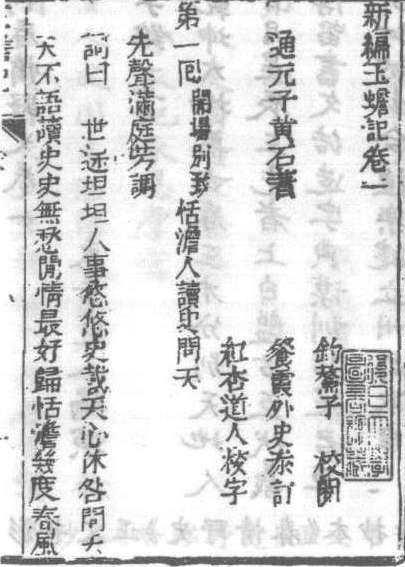 新編玉蟾記卷一
通元子黃石著
釣鰲子 校閱
餐霞外史叅訂
紅杏道人校字
第一囘 開塲別致 恬澹人讀史問天
先聲滿庭芳調
詞曰 世途坦坦人事悠悠史哉天心休咎問天
天不語讀史史無愁閒情最好歸恬澹幾度春風